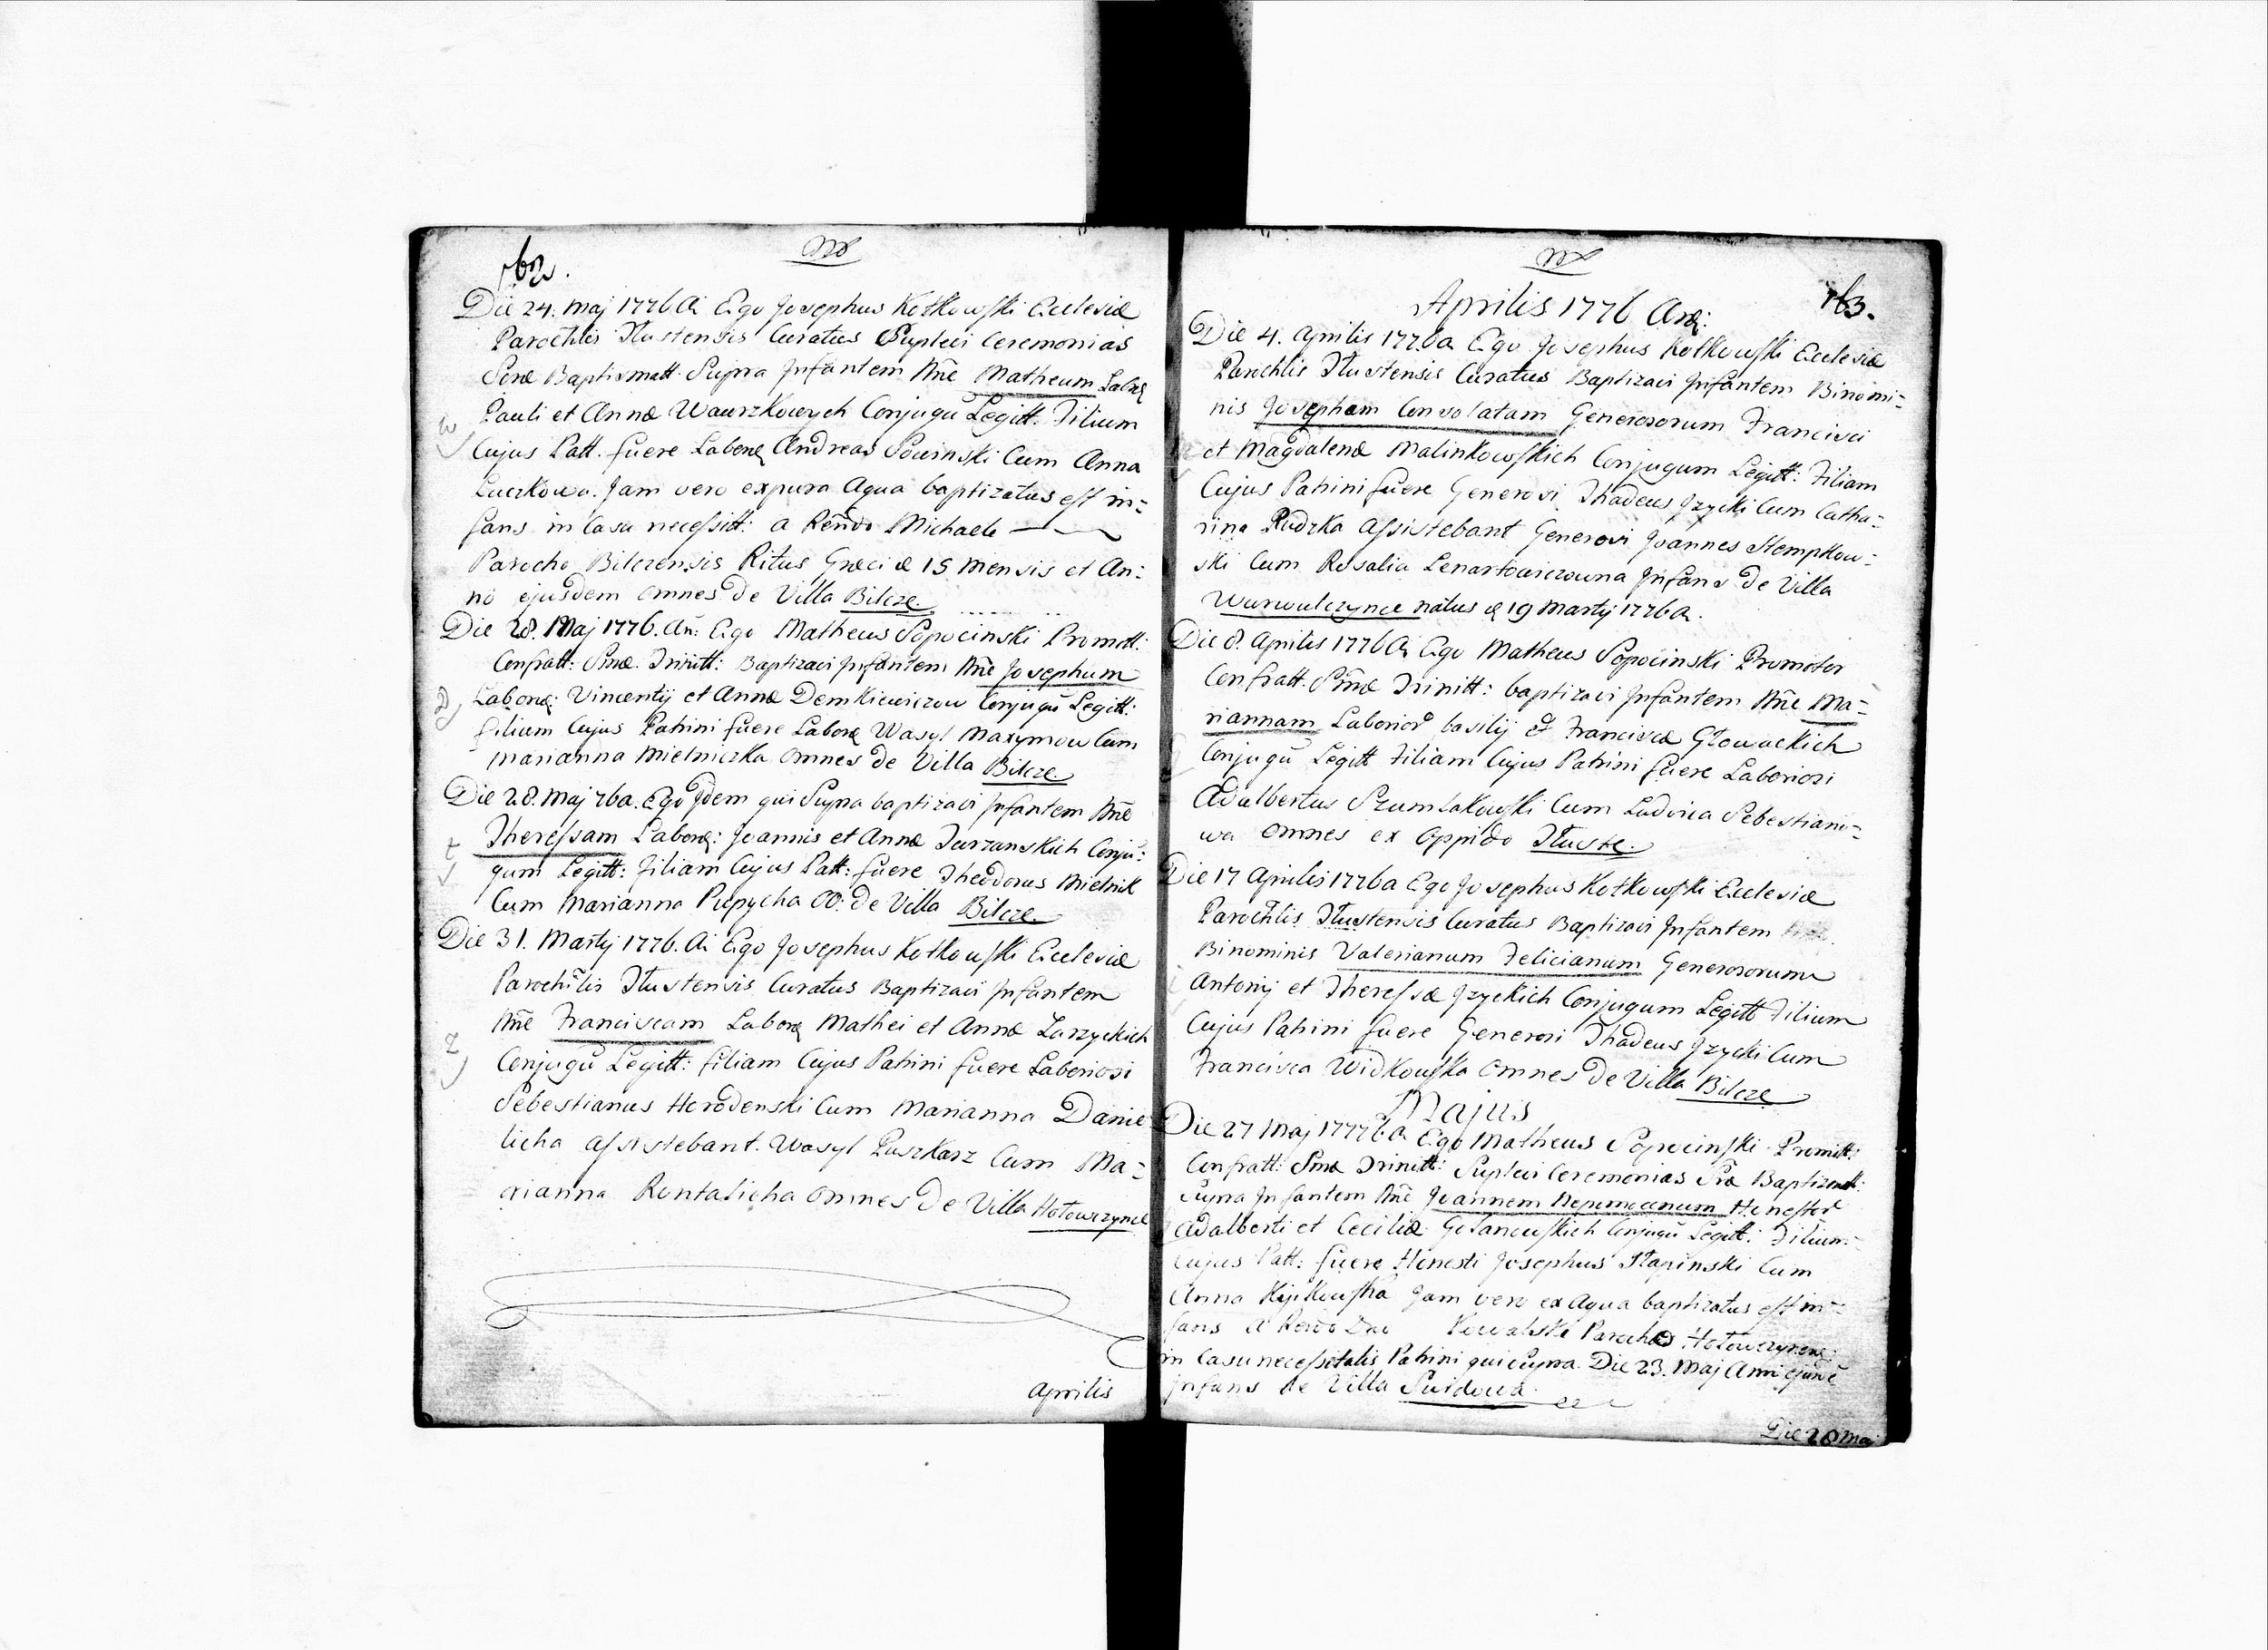 162.
Die 24. Maj 1776 Ai Ego Josephus Kotkowski Ecclesiæ
Parochlis Tłustensis Curatus Suplevi Ceremonias
Baptismatt. Supra Infantem Nñe Matheum
Pauli et Annæ Wawrzkowych Conjugũ Legitt. Filium
Cujus Patt. fuere Andreas Sowinski Cum Anna
Luczkowa. Jam vero expura Aqua baptizatus est in=
fans in Casu necessitt: a Rendo Michaele
Parocho Bilczensis Ritus Græci 15 mensis et An:
no ejusdem omnes De Villa Bilcze
Die 28. Maj 1776. An: Ego Matheus Popocinski Promott:
Confratt: Smæ. Trinitt: Baptizavi Infantem Nñe Josephum
Vincentij et Annæ Demkiewiczow Conjugũ Legitt:
filium Cujus Patrini fuere Wasyl Maxymow Cum
Marianna Mielniczka Omnes De Villa Bilcze
Die 28. Maj 76a. Ego Idem qui Supra baptizavi Infantem Nñe
Theressam Joannis et Annæ Turzanskich Conju:
gum Legitt: filiam Cujus Patt: fuere Theodorus Mielnik
Cum Marianna Pupycha OO: De Villa Bilcze
Die 31. Martij 1776. Ai Ego Josephus Kotkowski Ecclesiæ
Parochĩlis Tłustensis Curatus Baptizavi Infantem
Nñe Franciscam Mathei et Annæ Zarzyckich
Conjugũ Legitt: filiam Cujus Patrini fuere Laboriosi
Sebestianus Horodenski Cum Marianna Danie
licha assistebant. Wasyl Puszkarz Cum Ma=
rianna Rontalicha Omnes De Villa Hołowczynce
Aprilis
163.
Aprilis 1776
Die 4. Aprilis 1776a Ego Josephus Kotkowski Ecclesiæ
Parochlis Tłustensis Curatus Baptizavi Infantem Binomi=
nis Josepham Consolatam Generosorum Francisci
et Magdalenæ Malinkowskich Conjugum Legitt: Filiam
Cujus Patrini fuere Generosi Thadeus Jzycki Cum Catha=
rina Rudzka Assistebant Generosi Joannes Stempkow=
ski Cum Rosalia Lenartowiczowna Infans De Villa
Worwulczynce natus 19 Martij 1776a.
Die 8. Aprilis 1776 Ai Ego Matheus Popocinski Promotor
Confratt. Smæ Trinitt: baptizavi Infantem Nñe Ma=
riannam basilij et Franciscæ Głowackich
Conjugũ Legitt Filiam Cujus Patrini fuere Laboriosi
Adalbertus Szumlakowski Cum Ludvica Sebestiano=
wa omnes ex Oppido Tłuste.
Die 17 Aprilis 1776a Ego Josephus Kotkowski Ecclesiæ
Parochlis Tłustensis Curatus Baptizavi Infantem
Binominis Valerianum Felicianum Generosorum
Antonij et Theressæ Jzyckich Conjugum Legitt Filium
Cujus Patrini fuere Generosi Thadeus Jzycki Cum
Francisca Widkowska Omnes De Villa Bilcze
Majus
Die 27 Maj Ego Matheus Popocinski Promott:
Confratt: Smæ Trinitt: Suplevi Ceremonias Baptizmatt:
Supra Infantem Nñe Joannem Nepomucenum
Adalberti et Ceciliæ Conjugũ Legitt: Filium
cujus Patt: fuere Honesti Josephus Stapinski Cum
Anna Kipkowska Jam vero ex Aqua baptizatus est in=
fans a Kowalski
in Casu necessitatis Patrini qui Supra. Die 23. Maj Anni
Infans De Villa Swidowa
Die 28 Maj